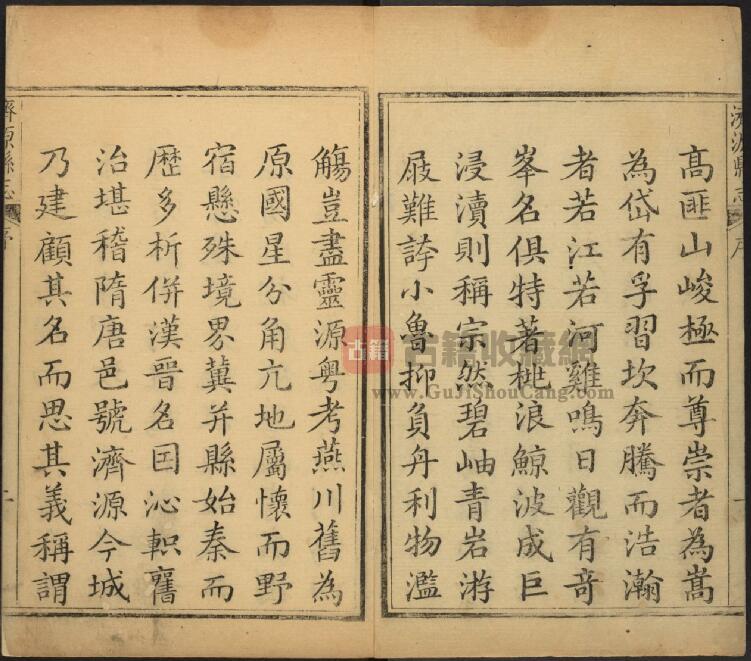 濟源縣志 序
高匪山峻極而尊崇者為嵩
為岱有孚習坎奔騰而浩瀚
者若江若河雞鳴日觀有奇
峯名俱特著桃浪鯨波成巨
浸瀆則稱宗然碧岫青岩游
屐難誇小魯抑負舟利物濫
觴豈盡靈源粵考燕川舊為
原國星分角亢地屬懷而野
宿懸殊境界冀并縣始秦而
歷多析併漢晉名因沁軹舊
治堪稽隋唐邑號濟源今城
乃建顧其名而思其義稱謂
濟源縣志 序 二
古籍 古籍收藏網
www.GuJiShouCang.com